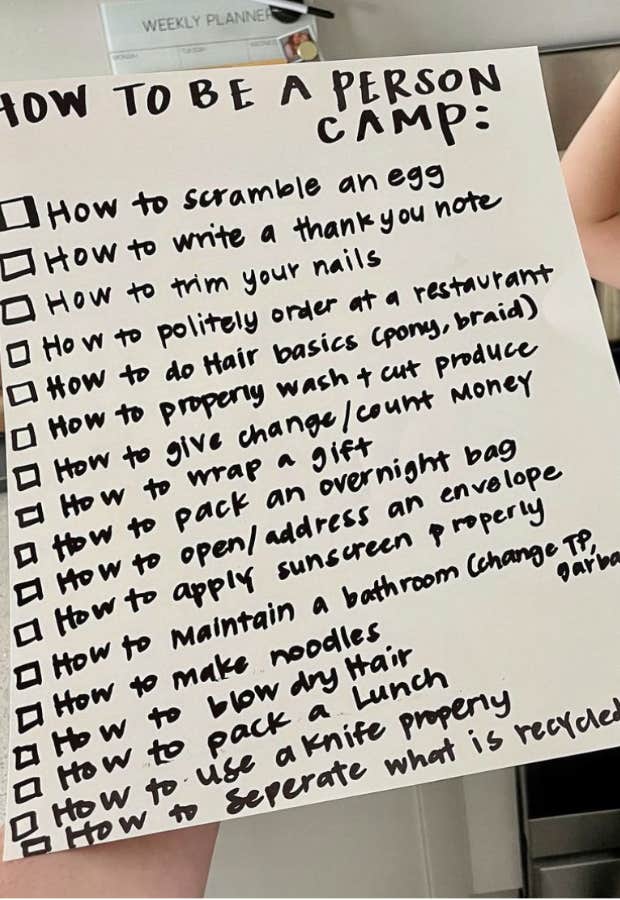 WEEKLY PLANNER
MONDAY TUESDAY
HOW TO BE A PERSON
CAMP:
How to scramble an egg
How to write a thank you note
How to trim your nails
How to politely order at a restaurant
How to do Hair basics (pony, braid)
How to properly wash + cut produce
How to give change/count Money
How to wrap a gift
How to pack an overnight bag
How to open/address an envelope
How to apply sunscreen properly
How to Maintain a bathroom (change TP,
garba
How to make noodles
How to blow dry Hair
How to pack a Lunch
How to use a knife properly
How to seperate what is recycled